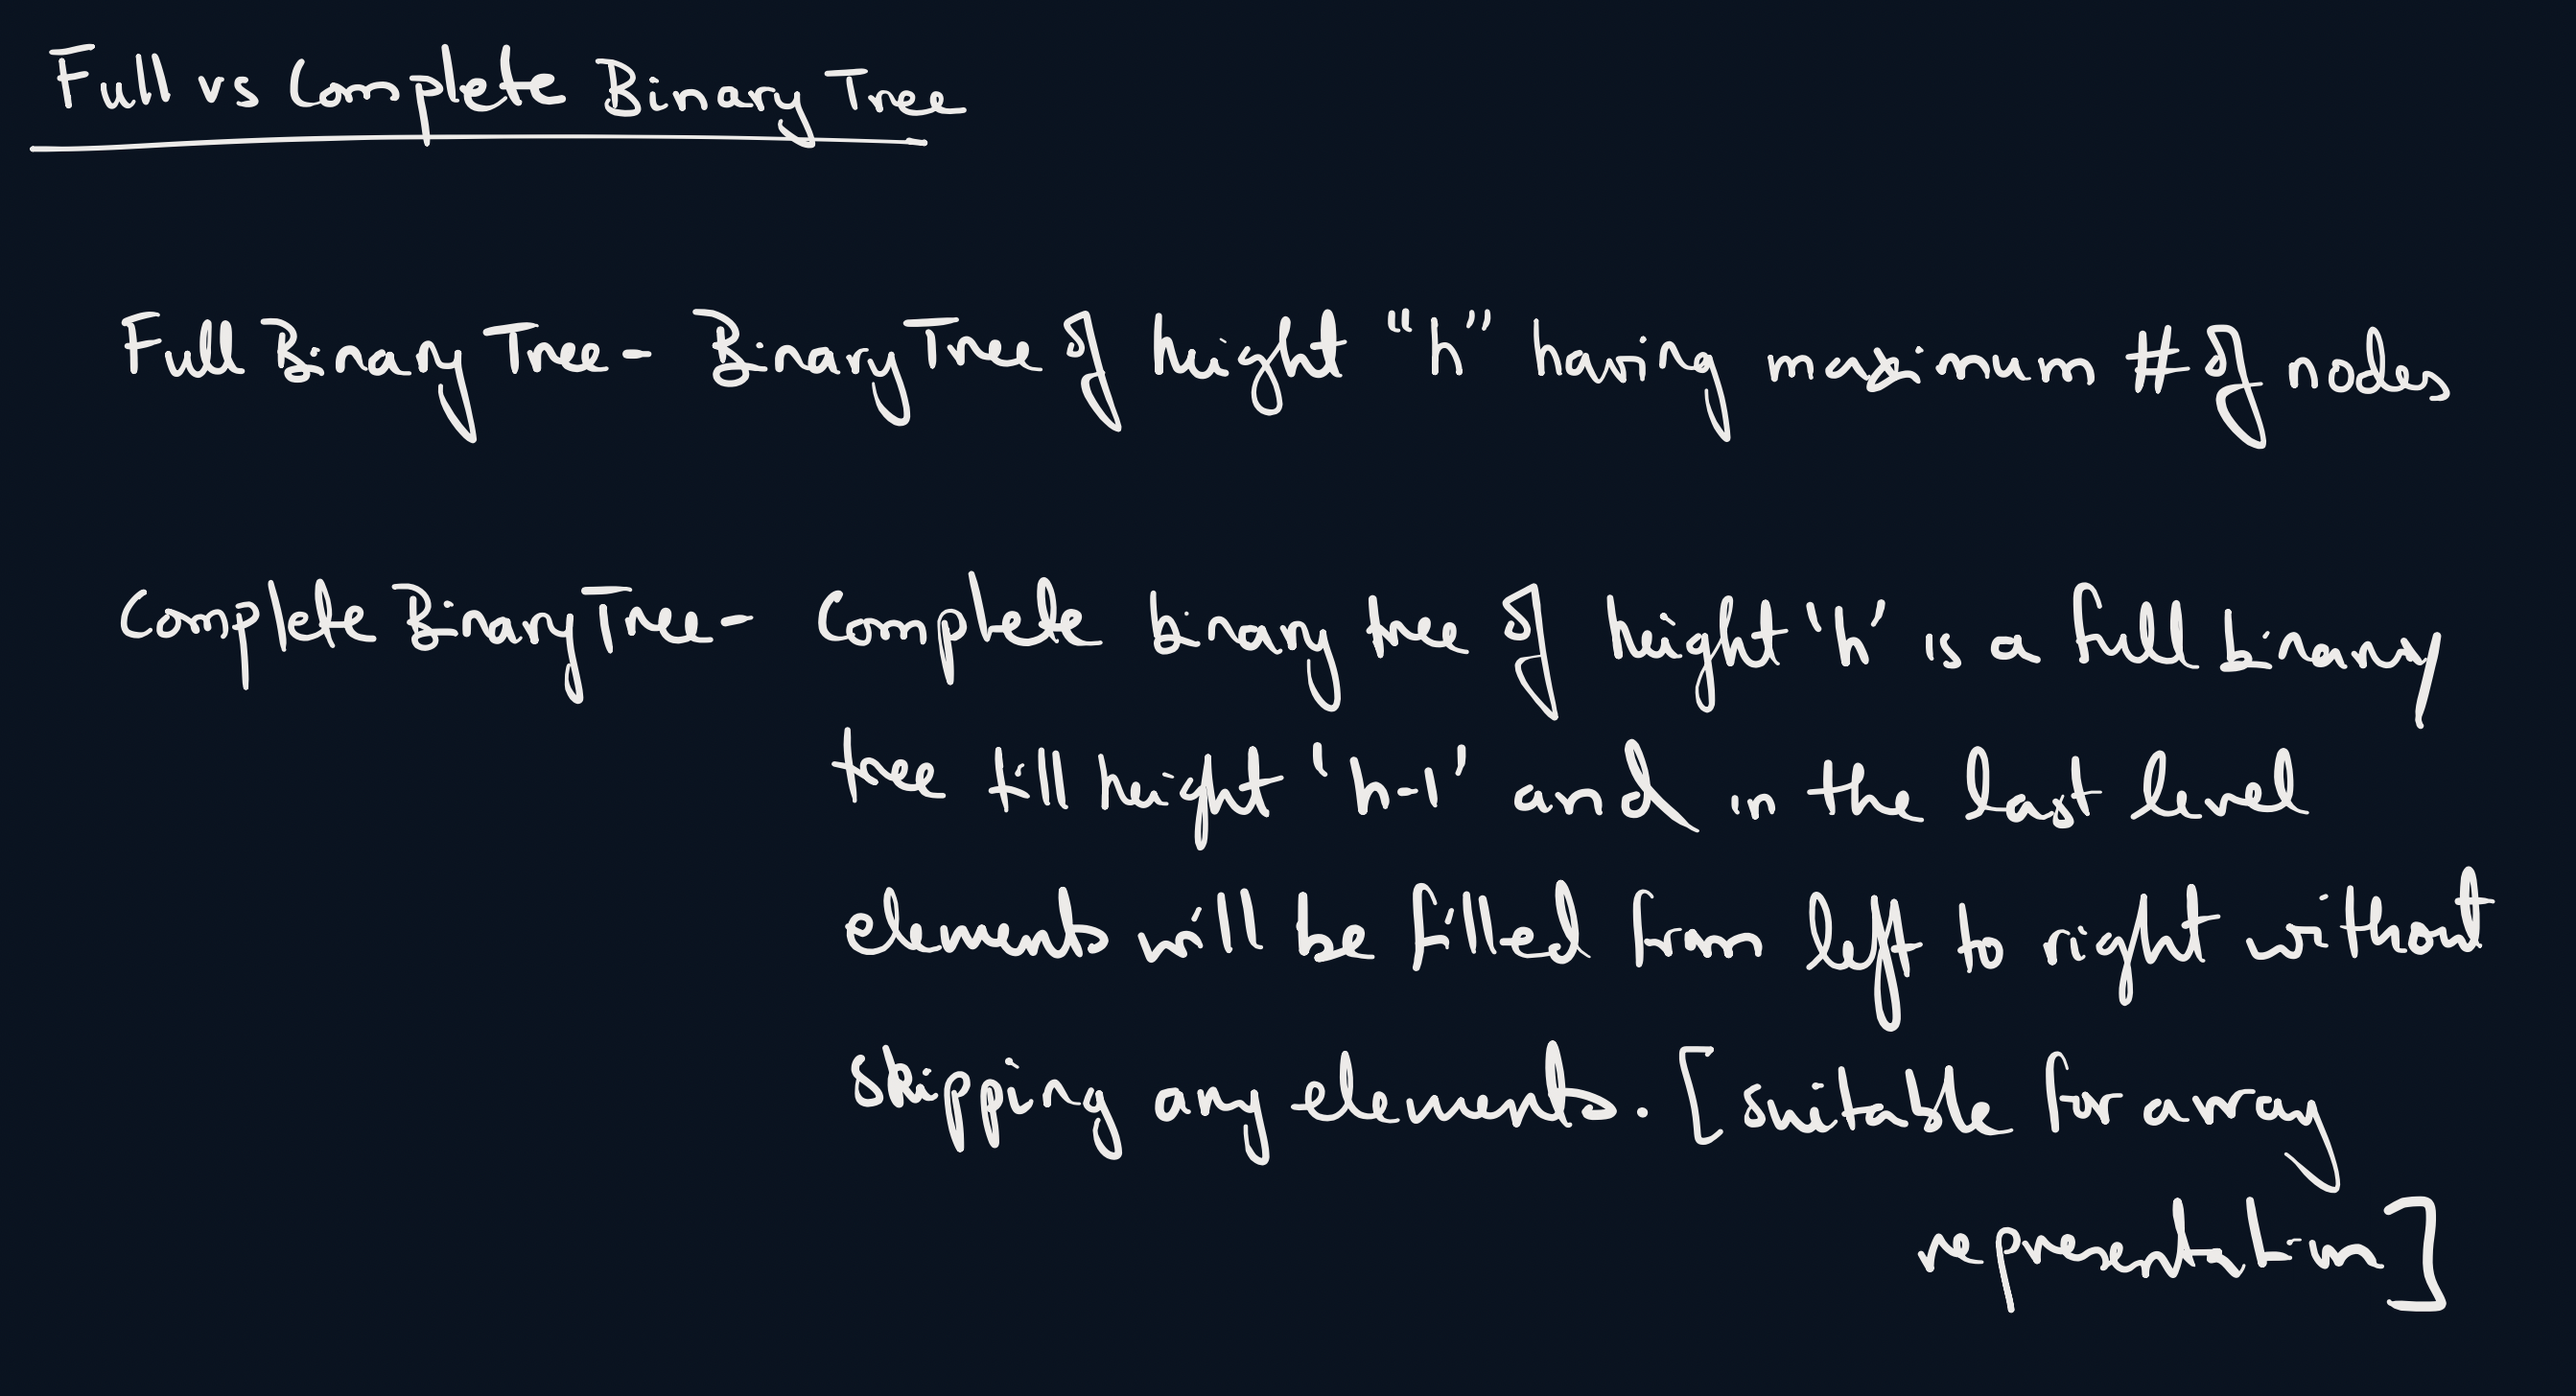 Full vs Complete Binary Tree
Full Binary Tree - Binary Tree of height "h" having maximum # of nodes
Complete Binary Tree - Complete binary tree of height 'h' is a full binary
tree till height 'h-1' and in the last level
elements will be filled from left to right without
skipping any elements. [suitable for array
representation]